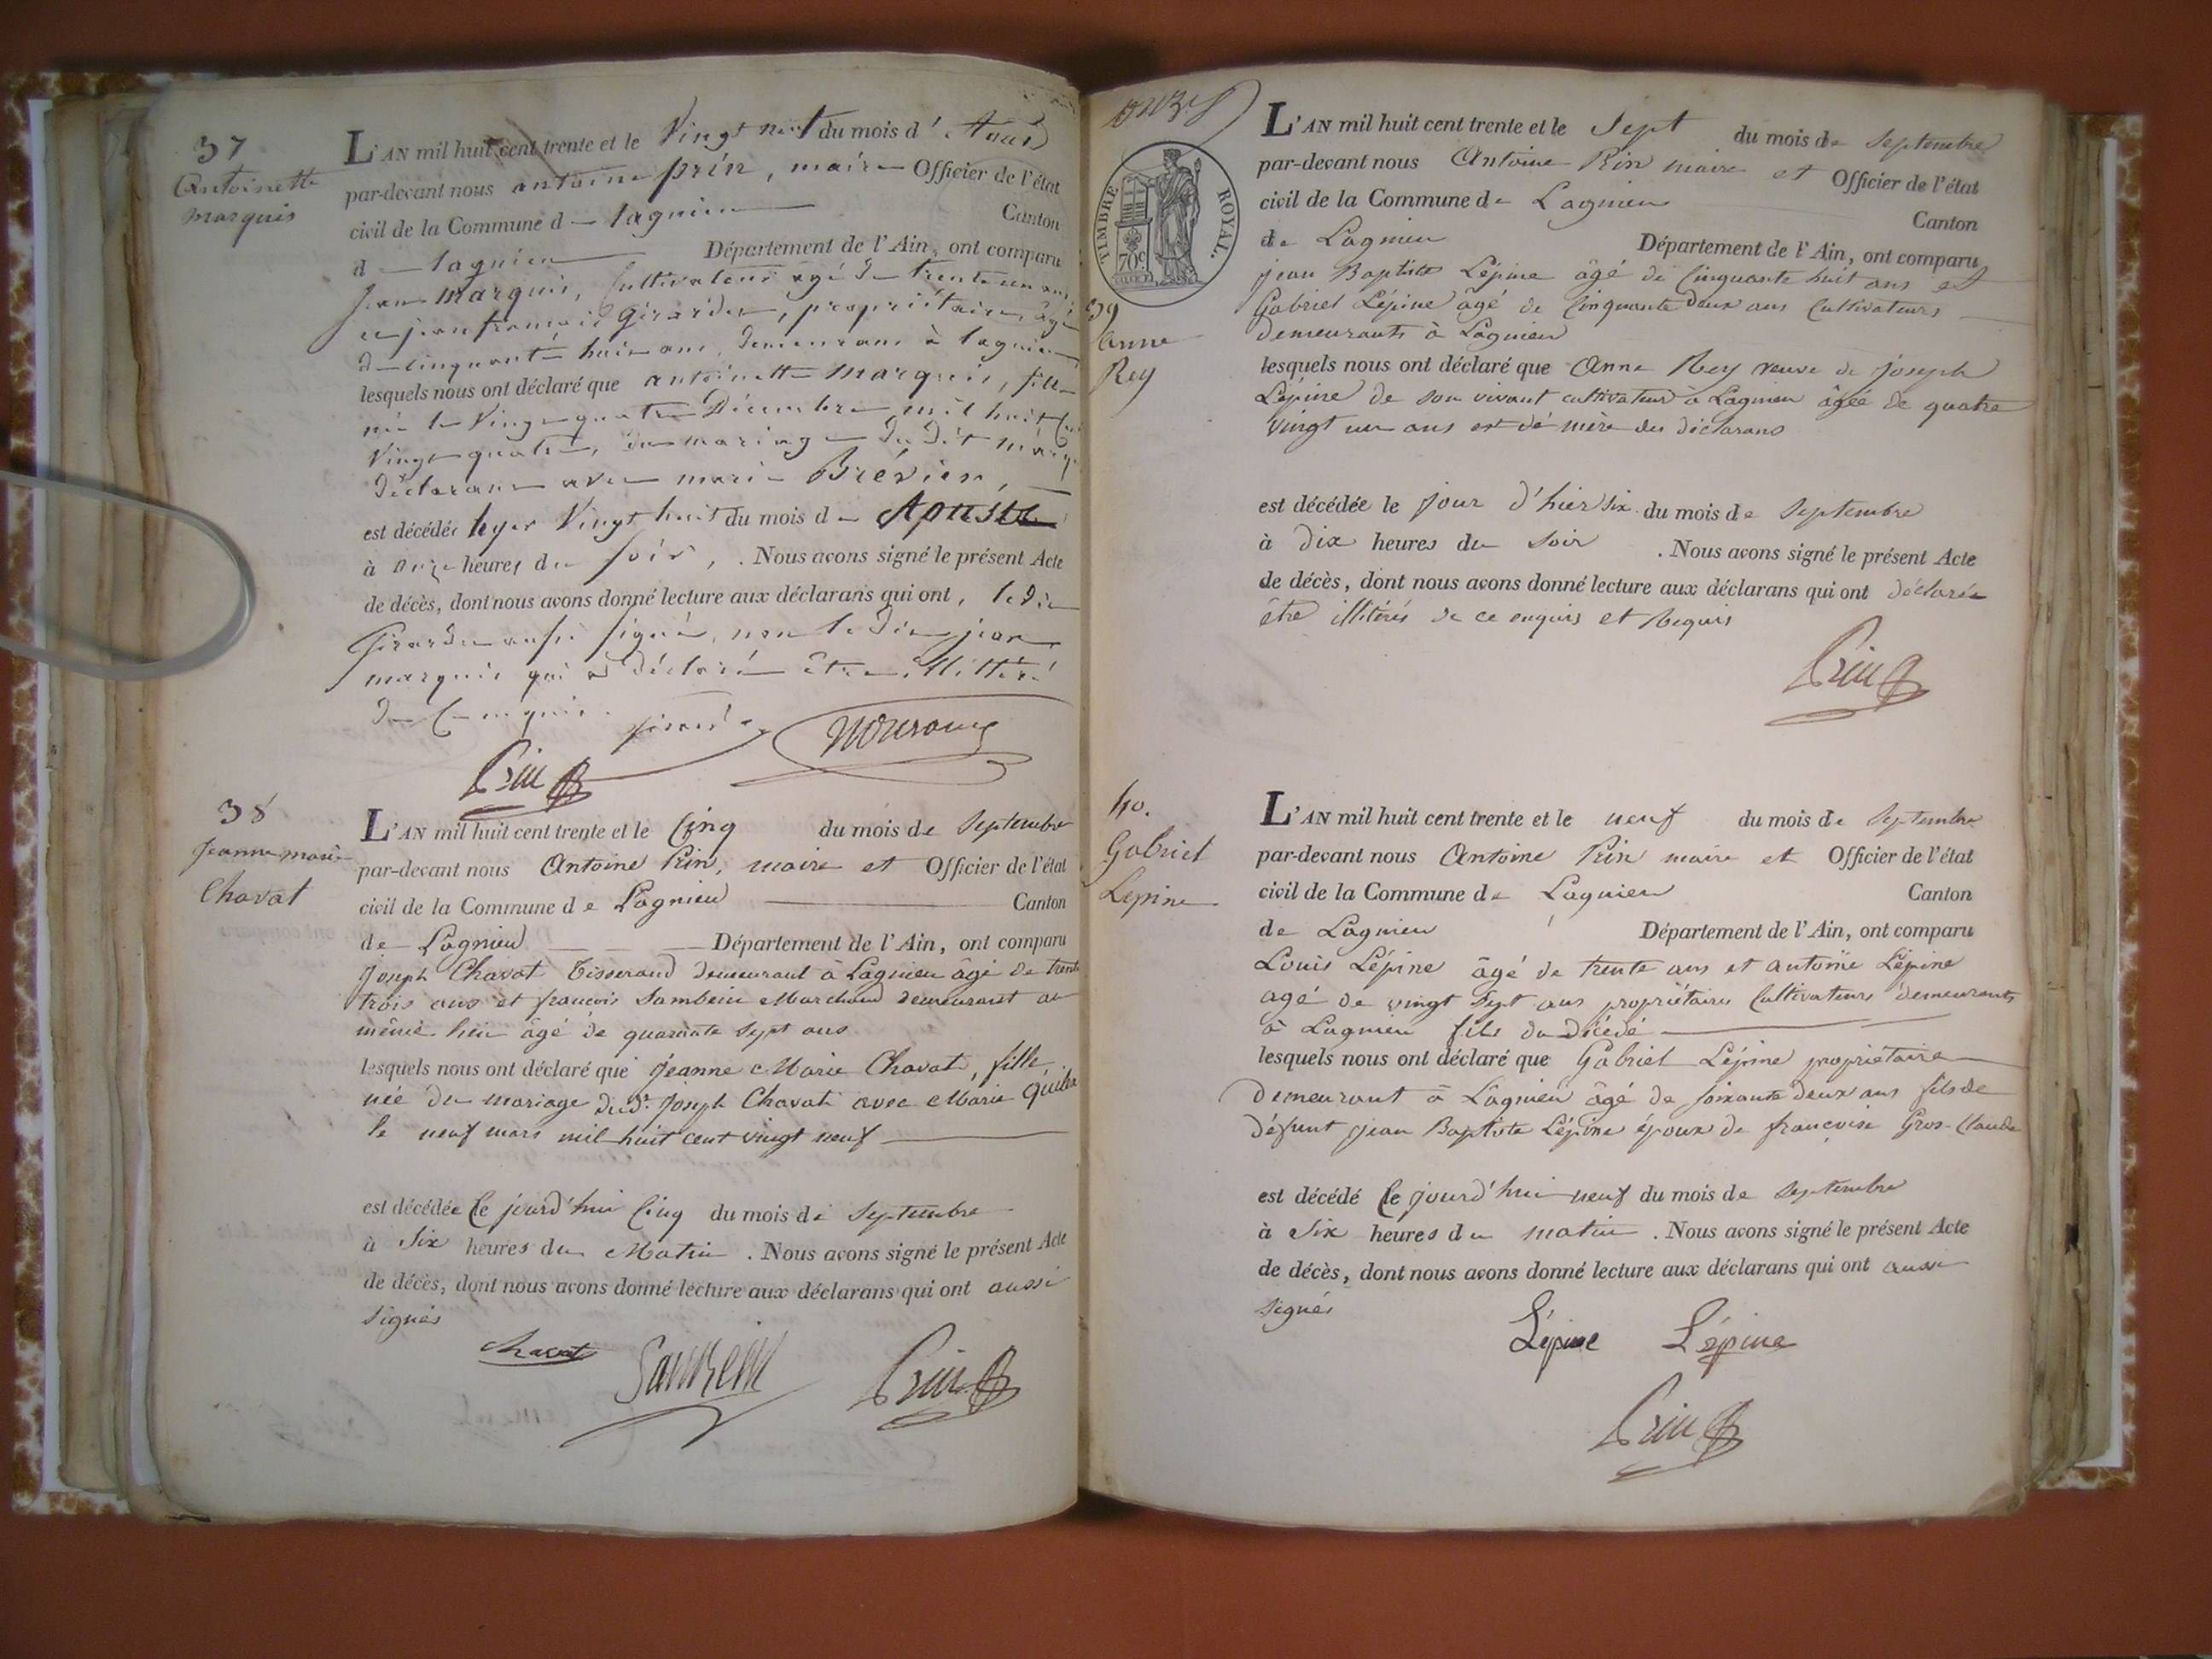 37
Antoinette
marquis
L'AN mil huit cent trente et le Vingt neuf du mois d' Aout
par-devant nous antoine prin, maire Officier de l'état
civil de la Commune d lagnieu Canton
d lagnieu Département de l'Ain, ont comparu
jean marquis, Cultivateur agé de trente un ans
et jean françois Girardet, propriétaire, agé
de cinquante huit ans, demeurans à lagnieu
lesquels nous ont déclaré que antoinette marquis, fille
née le Vingt quatre Décembre mil huit Cent
Vingt quatre, du mariage du dit marquis
déclarant avec marie Brévien,
est décédée hyer Vingt huit du mois d Aoust
à onze heures du soir, . Nous avons signé le présent Acte
de décès, dont nous avons donné lecture aux déclarans qui ont, ledit
Girardet aussi signé, non le dit jean
marquis qui a déclaré être illittéré
de Ce enquis.
Prin
38
Jeanne marie
Chavat
L'AN mil huit cent trente et le Cinq du mois de Septembre
par-devant nous Antoine Prin, maire et Officier de l'état
civil de la Commune de Lagnieu Canton
de Lagnieu Département de l'Ain, ont comparu
Joseph Chavat Tisserand demeurant à Lagnieu âgé de trente
trois ans et françois Sambein Marchand demeurant au
même lieu âgé de quarante sept ans
lesquels nous ont déclaré que Jeanne Marie Chavat, fille,
née du mariage dudt. Joseph Chavat avec Marie
le neuf mars mil huit cent vingt neuf
est décédée le jourd'hui Cinq du mois de Septembre
à Six heures du Matin . Nous avons signé le présent Acte
de décès, dont nous avons donné lecture aux déclarans qui ont aussi
signés
Chavat Sambein Prin
onze
TIMBRE ROYAL.
70c
39
anne
Rey
L'AN mil huit cent trente et le Sept du mois de Septembre
par-devant nous Antoine Prin maire et Officier de l'état
civil de la Commune de Lagnieu Canton
de Lagnieu Département de l'Ain, ont comparu
jean Baptiste Lépine âgé de Cinquante huit ans et
Gabriel Lépine âgé de Cinquante deux ans Cultivateurs
demeurants à Lagnieu
lesquels nous ont déclaré que Anne Rey veuve de joseph
Lépine de son vivant cultivateur à Lagnieu âgée de quatre
vingt un ans et de mère des déclarans
est décédée le jour d'hier six du mois de Septembre
à dix heures du soir . Nous avons signé le présent Acte
de décès, dont nous avons donné lecture aux déclarans qui ont déclarés
être illitérés de ce enquis et Requis
Prin
40.
Gabriel
Lepine
L'AN mil huit cent trente et le neuf du mois de Septembre
par-devant nous Antoine Prin maire et Officier de l'état
civil de la Commune de Lagnieu Canton
de Lagnieu Département de l'Ain, ont comparu
Louis Lépine âgé de trente ans et antoine Lépine
agé de vingt Sept ans propriétaires Cultivateurs demeurants
à Lagnieu fils du décédé
lesquels nous ont déclaré que Gabriel Lépine propriétaire
demeurant à Lagnieu âgé de soixante deux ans fils de
défunt jean Baptiste Lépine époux de françoise Gros-Claude
est décédé le jourd'hui neuf du mois de Septembre
à Six heures du matin . Nous avons signé le présent Acte
de décès, dont nous avons donné lecture aux déclarans qui ont aussi
signés
Lépine Lépine
Prin